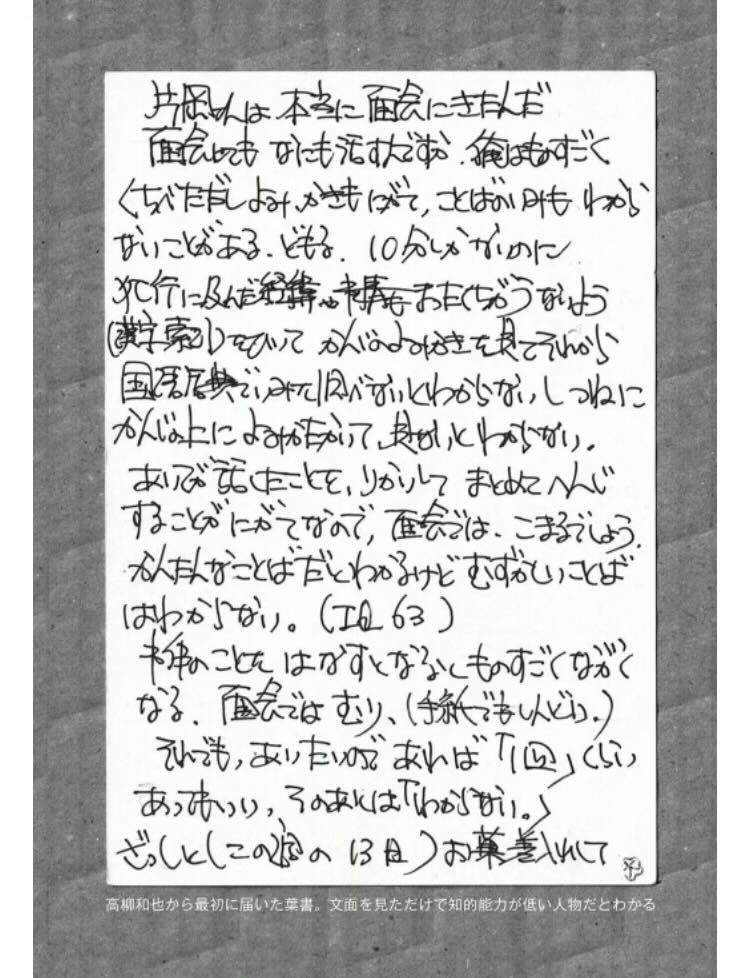 片岡さんは本当に面会にきたんだ
面会してもなにも話すんですか、俺はものすごく
くちべただしよみ、かきもにがて、ことばのいみもわから
ないことがある、どもる、10分しかないのに
犯行に及んだ経緯や事情も
(漢字索引)をひいてかんじのよみかきを見てそれから
国語辞典でいみを調べないとわからないしつねに
かんじの上によみがなかいて、見ないとわからない。
あいてが話したことを、りかいしてまとめてへんじ
することがにがてなので、面会では、こまるでしょう、
かんたんなことばだとわかるけどむずかしいことば
はわからない。(IQ 63)
事件のことをはなすとなるとものすごくながく
なる、面会ではむり、(手紙でもしんどい、)
それでも、あいたいのであれば「1回」くらい
あってもいい、そのあとは「わからない。」
ざっしと(この頃の13日)お菓子差入れして
高柳和也から最初に届いた葉書。文面を見ただけで知的能力が低い人物だとわかる